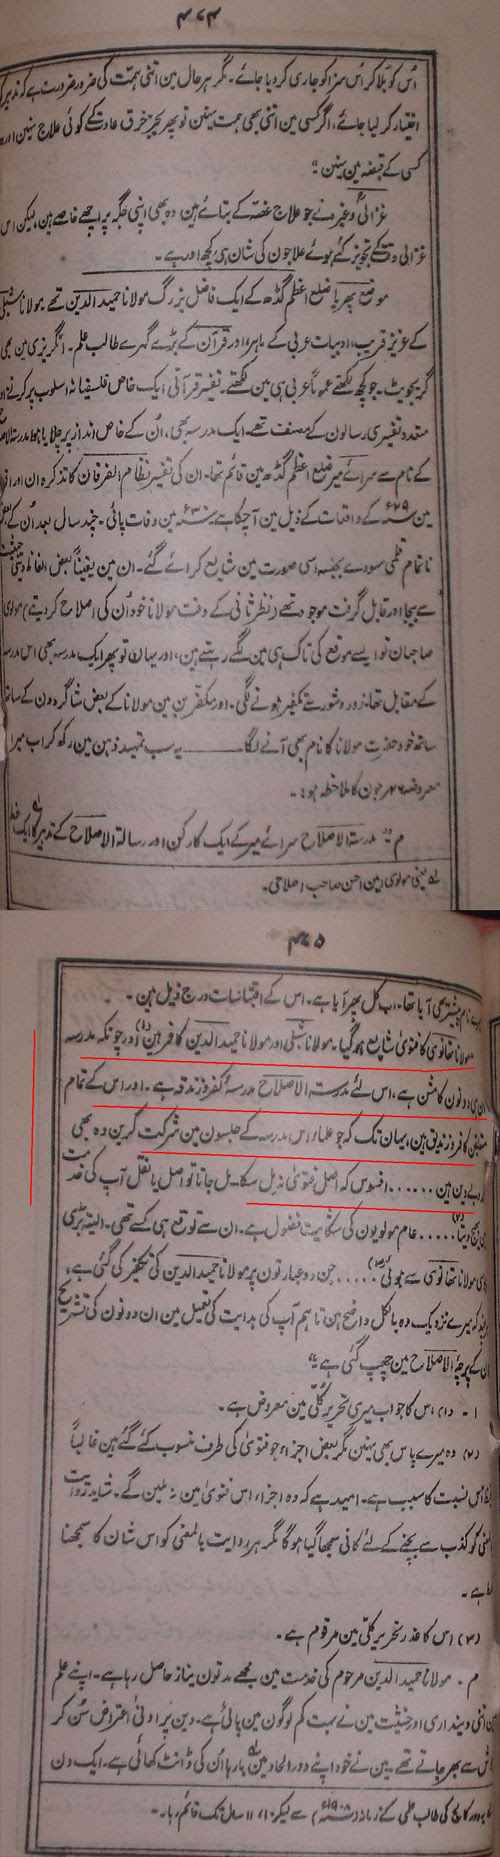 ۴۷۴
اُس کو بُلا کر اُس سزا کو جاری کر دیا جائے۔ مگر ہر حال مین اتنی ہمت کی ضرور ضرورت ہے کہ تدبیر کو
اختیار کر لیا جائے، اگر کسی مین اتنی بھی ہمت نہین تو پھر بجز خرق عادت کے کوئی علاج نہین اور وہ
کسی کے قبضہ مین نہین ؛"
غزالیؒ وغیرہ نے جو علاج غصّہ کے بتائے ہین وہ بھی اپنی جگہ پر اچھے خاصے ہین، لیکن اس
غزالیِ وقت کے تجویز کئے ہوئے علاجون کی شان ہی کچھ اور ہے۔
موضع پھریا ضلع اعظم گڈھ کے ایک فاضل بزرگ مولانا حمید الدین تھے، مولانا شبلی
کے عزیز قریب، ادبیات عربی کے ماہر، اور قرآن کے بڑے گہرے طالب علم۔ انگریزی مین بھی
گریجویٹ۔ جو کچھ لکھتے عموماً عربی ہی مین لکھتے۔ تفسیر قرآنی ایک خاص فلسفیانہ اسلوب پر کرتے اور
متعدد تفسیری رسالون کے مصنف تھے۔ ایک مدرسہ بھی، اُن کے خاص انداز پر چلایا ہوا مدرسۃ الاصلاح
کے نام سے سرائے میر ضلع اعظم گڈھ مین قائم تھا۔ ان کی تفسیر نظام الفرقان کا تذکرہ ان اوراق
مین ۲۹ء کے واقعات کے ذیل مین آ چکا ہے۔ ۳۰ء مین وفات پائی۔ چند سال بعد اُن کے بعض
ناتمام قلمی مسودے بجنسہ اسی صورت مین شایع کرائے گئے۔ ان مین یقیناً بعض الفاظ دینی حیثیت
سے بیجا اور قابل گرفت موجود تھے (نظر ثانی کے وقت مولانا خود اُن کی اصلاح کر دیتے) مولوی
صاحبان تو ایسے موقع کی تاک ہی مین لگے رہتے ہین، اور یہان تو پھر ایک مدرسہ بھی اس مدرسہ
کے مقابل تھا، زور و شور سے تکفیر ہونے لگی۔ اور مکفّرین مین مولانا کے بعض شاگردون کے ساتھ
ساتھ خود حضرت مولانا کا نام بھی آنے لگا ــــــ یہ سب تمہید ذہن مین رکھ کر اب میرا
معروضہ ۲۶ جون کا ملاحظہ ہو :۔
م "مدرسۃ الاصلاح سرائے میر کے ایک کارکن اور رسالۃ الاصلاح کے مدیر کا ایک خط
لہ یعنی مولوی امین احسن صاحب اصلاحی۔
۴۷۵
میرے نام پیشتر بھی آیا تھا۔ اب کل پھر آیا ہے۔ اس کے اقتباسات درج ذیل ہین۔
مولانا تھانوی کا فتویٰ شایع ہو گیا۔ مولانا شبلی اور مولانا حمید الدین کافر ہین (۱) اور چونکہ مدرسہ
ان ہی دونون کا مشن ہے، اس لئے مدرستہ الاصلاح مدرسۂ کفر و زندقہ ہے۔ اور اس کے تمام
متعلقین کافر و زندیق ہین، یہان تک کہ جو علماء اس مدرسہ کے جلسون مین شرکت کرین وہ بھی
بے دین ہین ...... افسوس کہ اصل فتویٰ نہ مل سکا۔ مل جاتا تو اصل یا نقل آپ کی خدمت
مین بھیج دیتا (۲)..... عام مولویون کی شکایت فضول ہے۔ ان سے توقع ہی کسے تھی۔ البتہ بڑی
مولانا تھانوی سے ہوئی (۳)..... جن دو عبارتون پر مولانا حمید الدین کی تکفیر کی گئی ہے،
میرے نزدیک وہ بالکل واضح ہین تاہم آپ کی ہدایت کی تعمیل مین ان دونون کی تشریح
ان کے پرچۂ الاصلاح مین چھپ گئی ہے ؛"
ا۔ (۱) اس کا جواب میری تحریر کُلّی مین معروض ہے۔
(۲) وہ میرے پاس بھی نہین مگر بعض اجزاء جو فتویٰ کی طرف منسوب کئے گئے ہین غالباً
اس نسبت کا سبب ہے۔ امید ہے کہ وہ اجزاء اس فتویٰ مین نہ ملین گے۔ شاید روایت
بالمعنی کو کذب سے بچنے کے لئے کافی سمجھا گیا ہوگا مگر ہر روایت بالمعنی کو اس شان کا سمجھنا
غلط ہے۔
(۳) اس کا عذر تحریر کلی مین مرقوم ہے۔
م۔ مولانا حمید الدین مرحوم کی خدمت مین مجھے مدتون نیاز حاصل رہا ہے۔ اپنے علم
مین اتنی دینداری اور خشیت مین نے بہت کم لوگون مین پائی ہے۔ دین پر ادنیٰ اعتراض سُن کر
سے بھر جاتے تھے۔ مین نے خود اپنے دور الحاد مین بارہا اُن کی ڈانٹ کھائی ہے۔ ایک دن
یہ دور کالج کی طالب علمی کے زمانہ (۱۹۰۸ء) سے لیکر ۱۰، ۱۱ سال تک قائم رہا۔